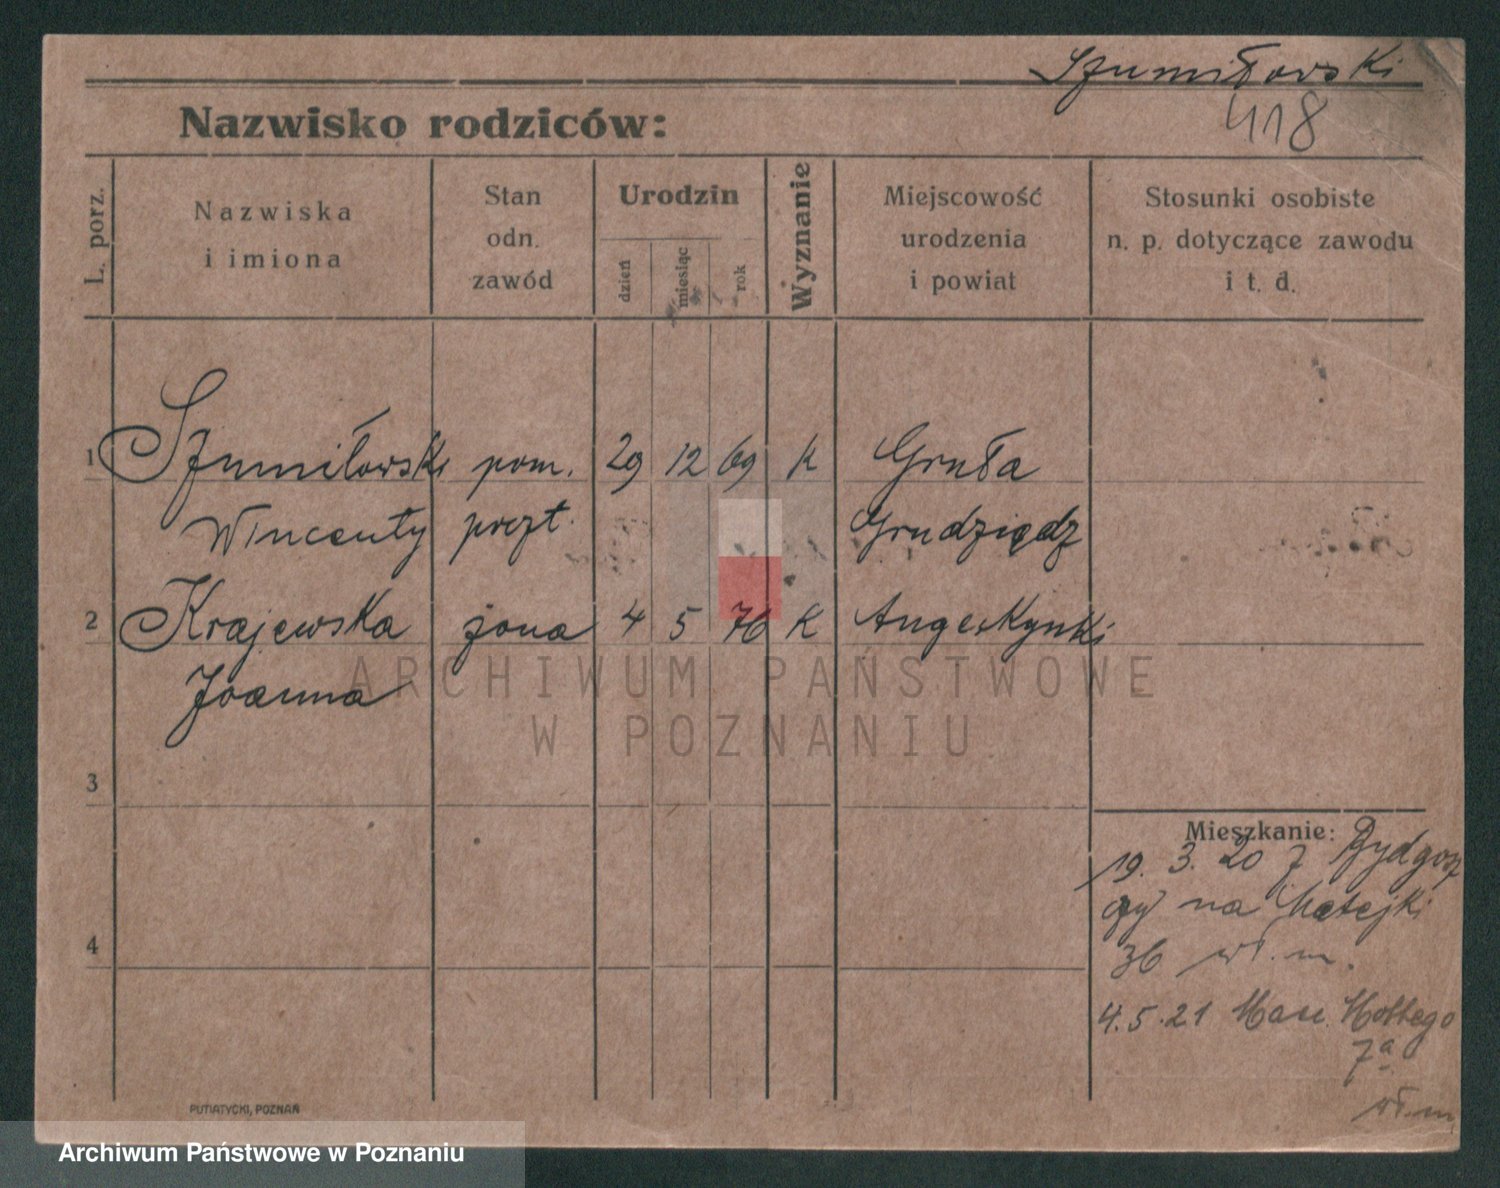 Szumiłowski
418
Nazwisko rodziców:
L. porz.
Nazwiska
i imiona
Stan
odn.
zawód
Urodzin
dzień
miesiąc
rok
Wyznanie
Miejscowość
urodzenia
i powiat
Stosunki osobiste
n. p. dotyczące zawodu
i t. d.
1 Szumiłowski pom. 29 12 69 K Gruta
Wincenty poczt. Grudziądz
2 Krajewska żona 4 5 76 K
Joanna
ARCHIWUM PAŃSTWOWE
W POZNANIU
3
Mieszkanie: Bydgosz
19. 3. 20 z
czy na Matejki
4
36 wł. m.
4.5.21 Mac.
7a
wł. m.
PUTIATYCKI, POZNAŃ
Archiwum Państwowe w Poznaniu